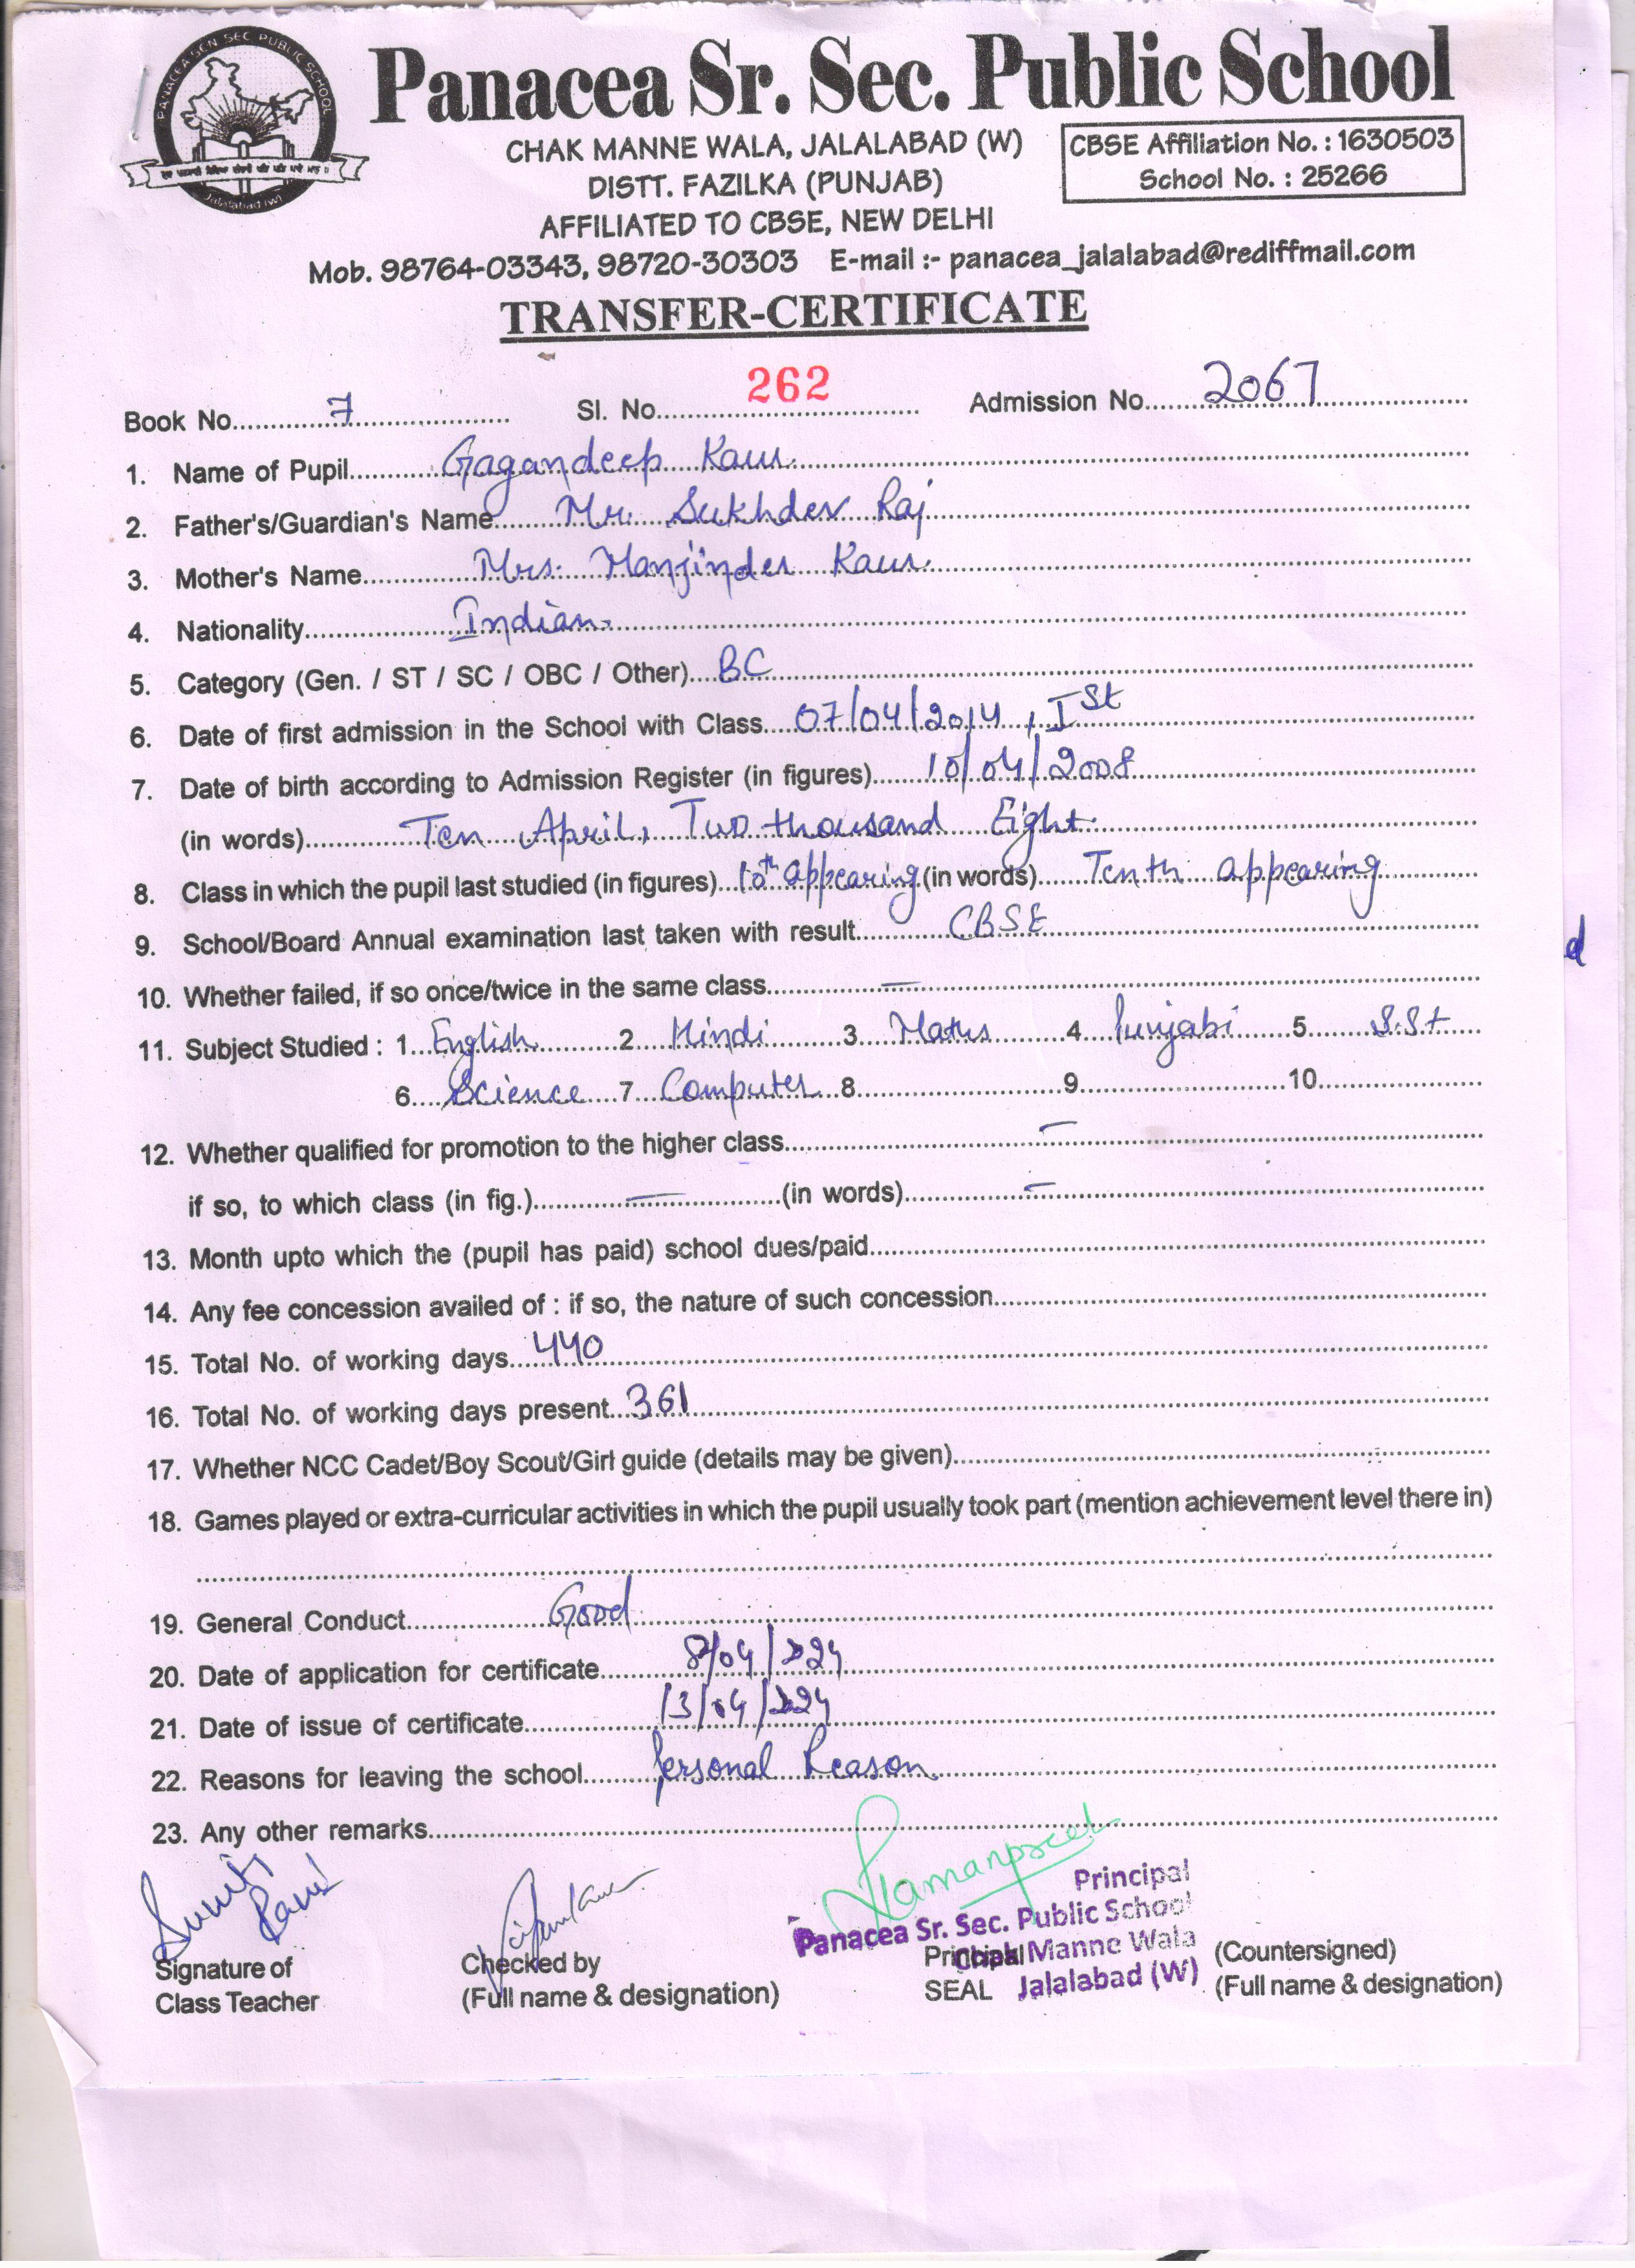 PANACEA SEN SEC PUBLIC SCHOOL
Jalalabad (W)
Panacea Sr. Sec. Public School
CHAK MANNE WALA, JALALABAD (W)
DISTT. FAZILKA (PUNJAB)
AFFILIATED TO CBSE, NEW DELHI
CBSE Affiliation No. : 1630503
School No. : 25266
Mob. 98764-03343, 98720-30303 E-mail :- panacea_jalalabad@rediffmail.com
TRANSFER-CERTIFICATE
Book No. 7 Sl. No. 262 Admission No. 2067
1. Name of Pupil Gagandeep Kaur
2. Father's/Guardian's Name Mr. Sukhdev Raj
3. Mother's Name Mrs. Manjinder Kaur
4. Nationality Indian
5. Category (Gen. / ST / SC / OBC / Other) BC
6. Date of first admission in the School with Class 07/04/2014, Ist
7. Date of birth according to Admission Register (in figures) 10/04/2008
(in words) Ten April, Two thousand Eight
8. Class in which the pupil last studied (in figures) 10th appearing (in words) Tenth appearing
9. School/Board Annual examination last taken with result CBSE
10. Whether failed, if so once/twice in the same class —
11. Subject Studied : 1 English 2 Hindi 3 Maths 4 Punjabi 5 S.St
6 Science 7 Computer 8 9 10
12. Whether qualified for promotion to the higher class —
if so, to which class (in fig.) — (in words) —
13. Month upto which the (pupil has paid) school dues/paid
14. Any fee concession availed of : if so, the nature of such concession
15. Total No. of working days 440
16. Total No. of working days present 361
17. Whether NCC Cadet/Boy Scout/Girl guide (details may be given)
18. Games played or extra-curricular activities in which the pupil usually took part (mention achievement level there in)
19. General Conduct Good
20. Date of application for certificate 8/04/2024
21. Date of issue of certificate 13/04/2024
22. Reasons for leaving the school Personal Reason
23. Any other remarks
Ramanpreet
Principal
Panacea Sr. Sec. Public School
Chak Manne Wala
Jalalabad (W)
Signature of
Class Teacher
Checked by
(Full name & designation)
Principal
SEAL
(Countersigned)
(Full name & designation)